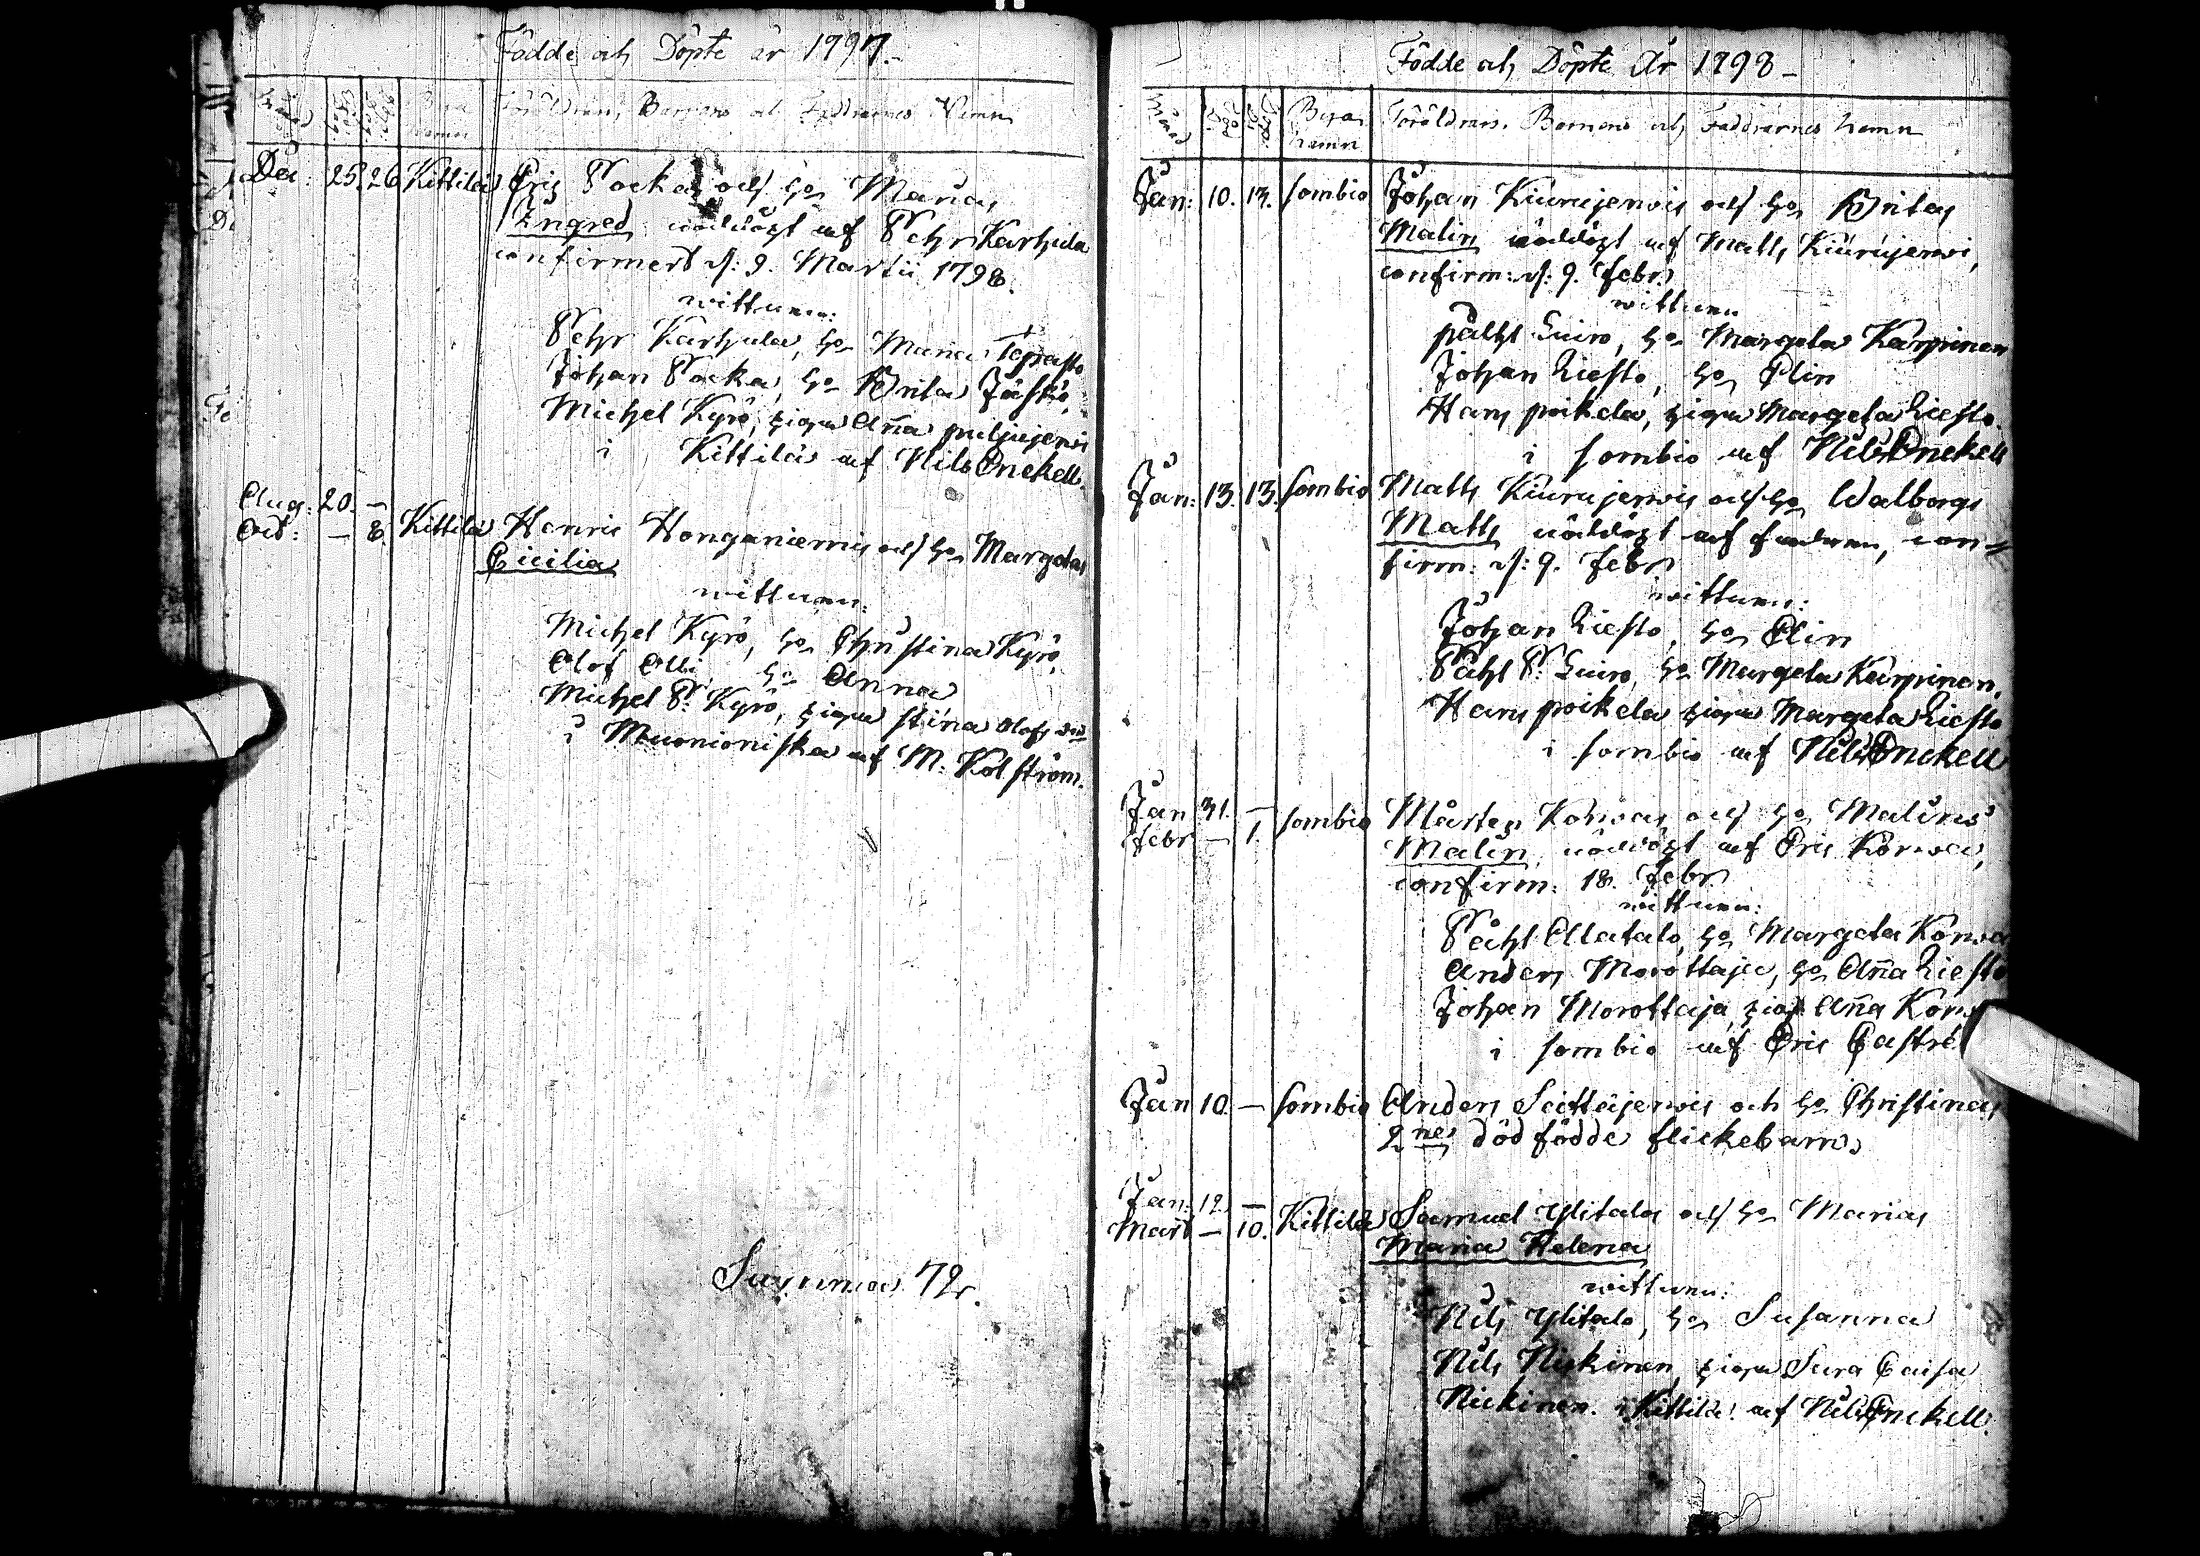 Födde och Döpte år 1797.
Månad
Föräldrars, Barnens och Faddrarnes Namn
Dec: 25. 26 Kittilä Eric Pockas och h:s Marias
Ingred, nöddöpt af Pehr Karhula
confirmert d: 9. Martii 1798.
wittnen:
Pehr Karhula, h:s Maria Tepasto
Johan Pocka, h:s Brita Jäskö,
Michel Kyrö, pigan Aña puljujerwi
i Kittilä af Nils Enckell.
Aug: 20. –
Oct: – 8. Kittilä Henric Honganiemis och h:s Margetas
Cicilia
wittnen:
Michel Kyrö, h:s Christina Kyrö,
Olof Olli, h:s Anna
Michel P: Kyrö, pigan Stina Olofs
i Muonioniska af M: Kolström.
Summa 72.
Födde och Döpte År 1798
Månad Byia namn Föräldrars, Barnens och Faddrarnes namn
Jan: 10. 13. Sombio Johan Kiurujerwis och h:s Britas
Malin nöddöpt af Matts Kiurujerwi,
confirm: d: 9. febr:
wittnen
påhl Luiro, h:s Margeta Karppinen
Johan Liesto, h:s Elin
Hans poikela, pigan Margeta Liesto.
i Sombio af Nils Enckell
Jan: 13. 13. Sombio Matts Kiurujerwis och h:s Walborgs
Matts nöddöpt af fadren, con-
firm: d: 9. febr
wittnen:
Johan Liesto, h:s Elin
Påhl P: Luiro, h:s Margeta Karppinen.
Hans poikela pigan Margeta Liesto
i Sombio af Nils Enckell
Jan 31. –
febr – 1. Sombio Mårten Korwas och h:s Malins
Malin, nöddöpt af Eric Korwa,
confirm: 18. febr
wittnen:
Påhl Alatalo, h:s Margeta Korwa
Anders Morottaja, h:s Aña Liesto
Johan Morottaja, pig: Aña Korw
i Sombio af Eric Castré
Jan 10. – Sombio Anders Seittajerwis och h:s Christinas
2ne dödfödde flickebarn.
Jan: 12. –
Mart – 10. Kittilä Samuel Ylitalos och h:s Marias
Maria Helena
wittnen:
Nils Ylitalo, h:s Susanna
Nils Niskinen, pigan Sara Caisa
Niskinen. i Kittilä af Nils Enckell.